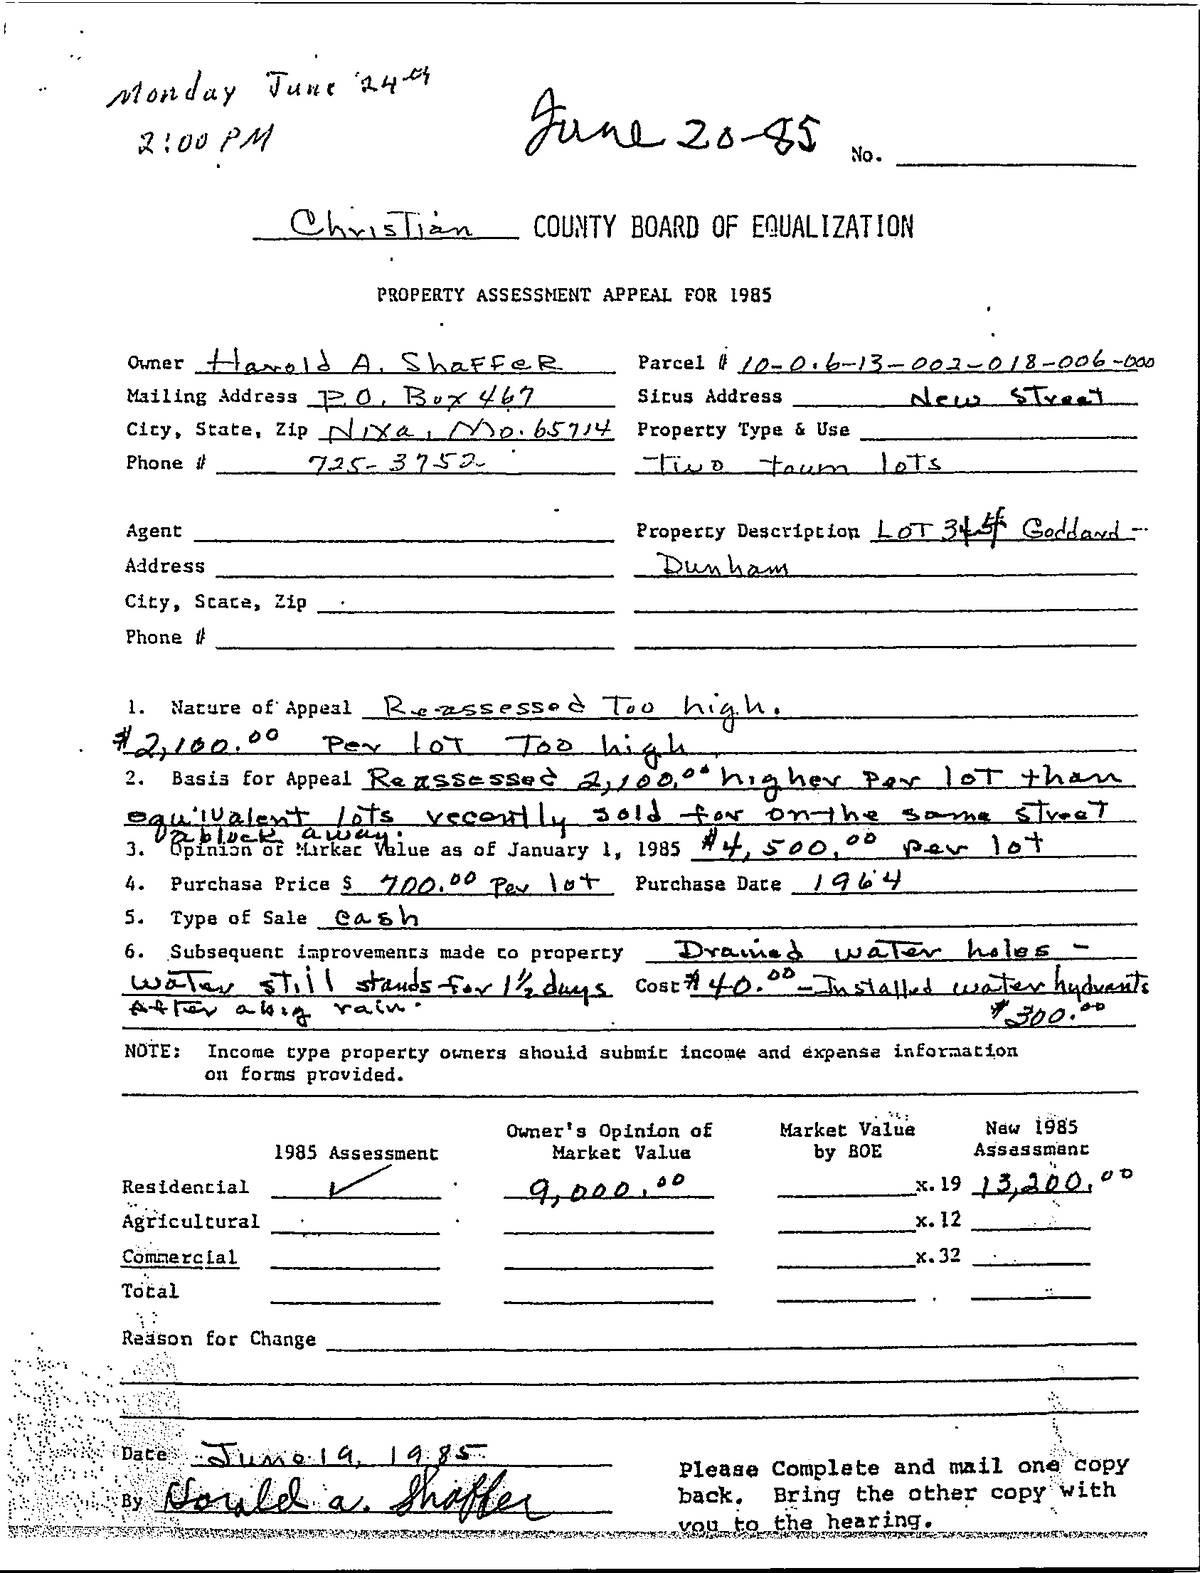 Monday June 24th
2:00 PM
June 20-85
No.
Christian COUNTY BOARD OF EQUALIZATION
PROPERTY ASSESSMENT APPEAL FOR 1985
Owner Harold A. Shaffer Parcel # 10-0.6-13-002-018-006-000
Mailing Address P.O. Box 467 Situs Address New Street
City, State, Zip Nixa, Mo. 65714 Property Type & Use
Phone # 725-3752 Two town lots
Agent Property Description LOT 3 + 4 Goddard-
Address Dunham
City, State, Zip
Phone #
1. Nature of Appeal Reassessed Too high.
$2,100.00 Per lot Too high
2. Basis for Appeal Reassessed 2,100.00 higher Per lot than
equivalent lots recently sold for on the same street
a block away.
3. Opinion of Market Value as of January 1, 1985 $4,500.00 per lot
4. Purchase Price $ 700.00 Per lot Purchase Date 1964
5. Type of Sale cash
6. Subsequent improvements made to property Drained water holes -
water still stands for 1½ days Cost $40.00 - Installed water hydrants
After a big rain. $300.00
NOTE: Income type property owners should submit income and expense information
on forms provided.
1985 Assessment Owner's Opinion of Market Value Market Value by BOE New 1985 Assessment
Residential ✓ 9,000.00 x.19 13,200.00
Agricultural x.12
Commercial x.32
Total
Reason for Change
Date June 19, 1985
By Harold A. Shaffer
Please Complete and mail one copy
back. Bring the other copy with
you to the hearing.